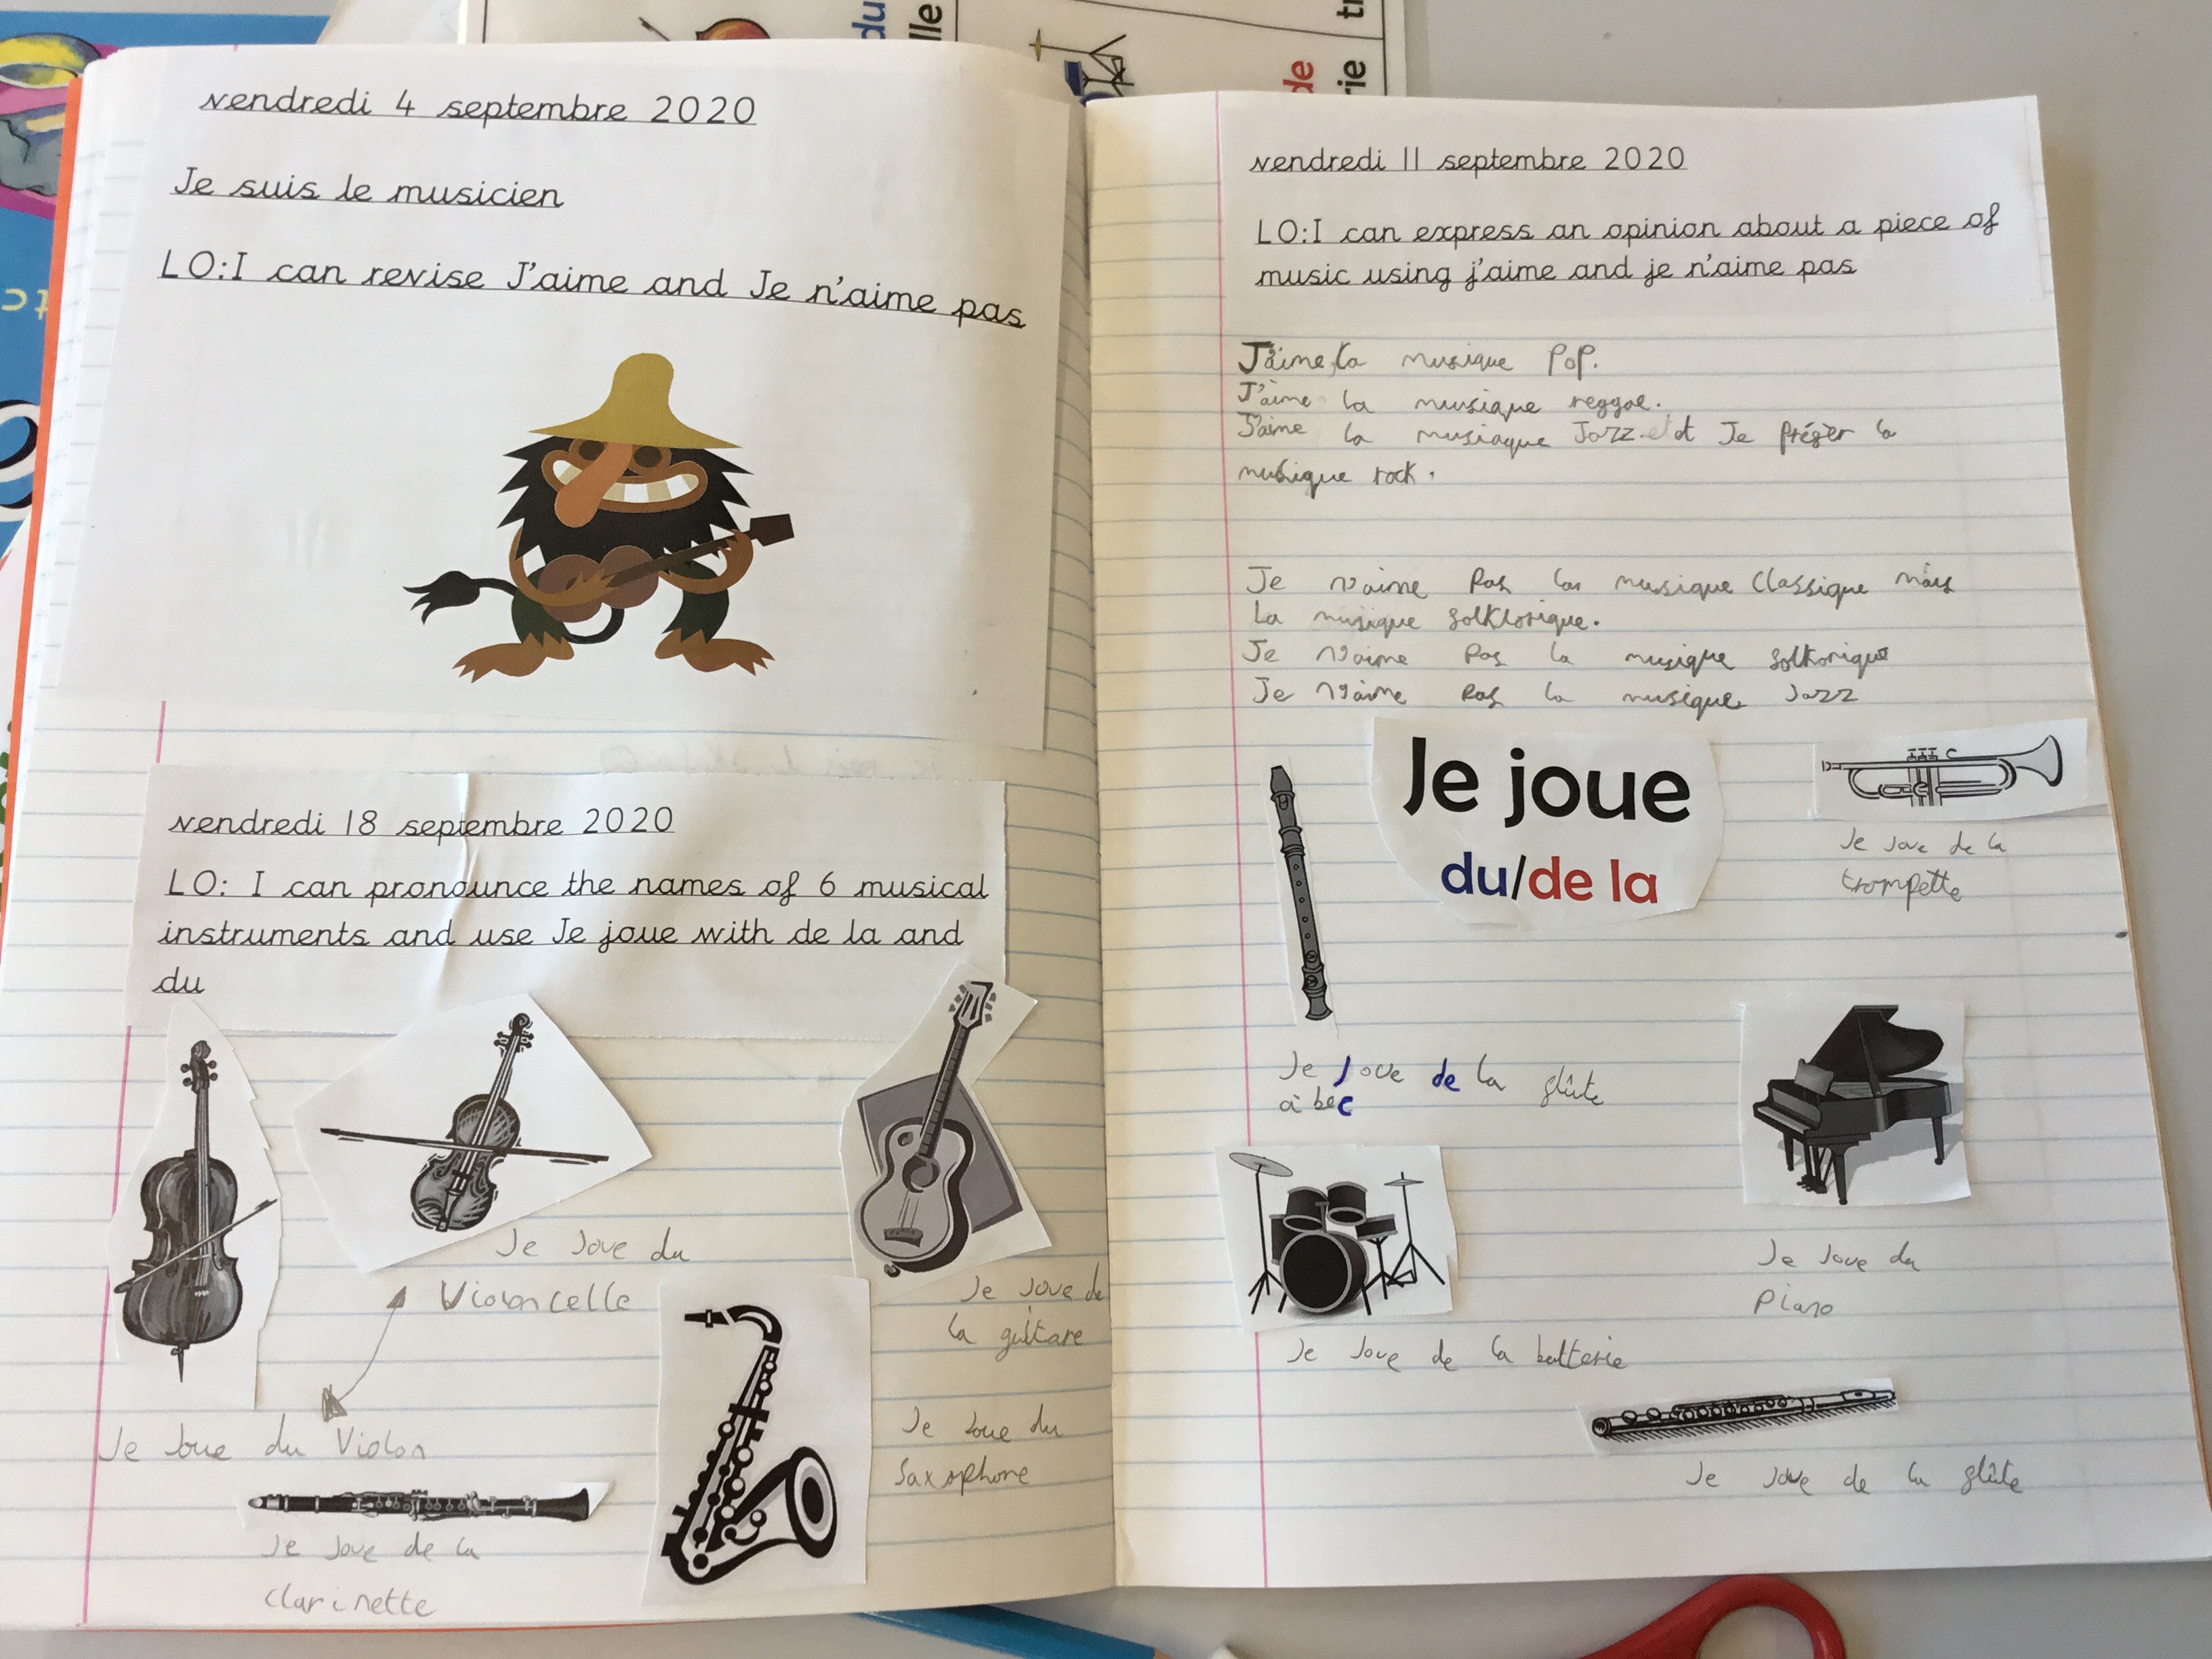 vendredi 4 septembre 2020
Je suis le musicien
LO:I can revise J'aime and Je n'aime pas
vendredi 18 septembre 2020
LO: I can pronounce the names of 6 musical
instruments and use Je joue with de la and
du
Je Joue du
Violoncelle
Je Joue de
la guitare
Je Joue du Violon
Je Joue du
Saxophone
Je Joue de la
clarinette
vendredi 11 septembre 2020
LO:I can express an opinion about a piece of
music using j'aime and je n'aime pas
J'aime la musique Pop.
J'aime la musique reggae.
J'aime la musiaque Jazz et Je Préfer la
musique rock.
Je n'aime Pas la musique Classique mais
La musique folklorique.
Je n'aime Pas la musique folkorique
Je n'aime Pas la musique Jazz
Je joue
du/de la
Je Joue de la
trompette
Je Joue de la flûte
à bec
Je Joue du
Piano
Je Joue de la batterie
Je Joue de la flûte
du
lle
de
rie
tr